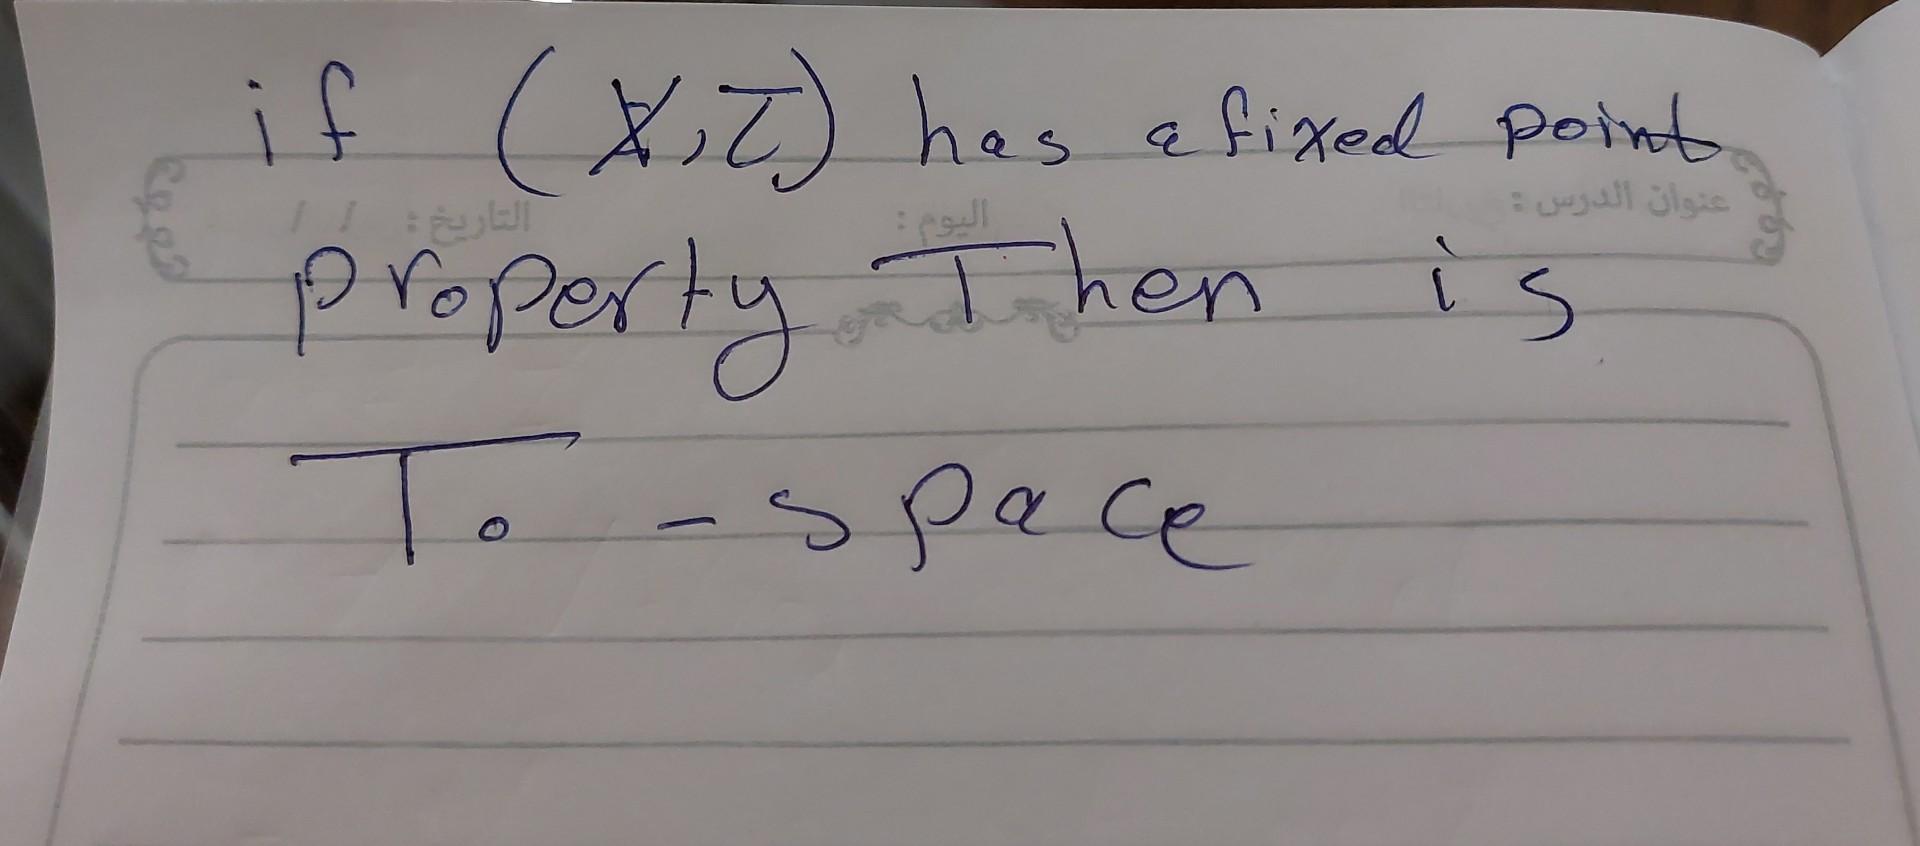 if (X,τ) has a fixed point
عنوان الدرس : اليوم : التاريخ : / /
property Then is
To - space